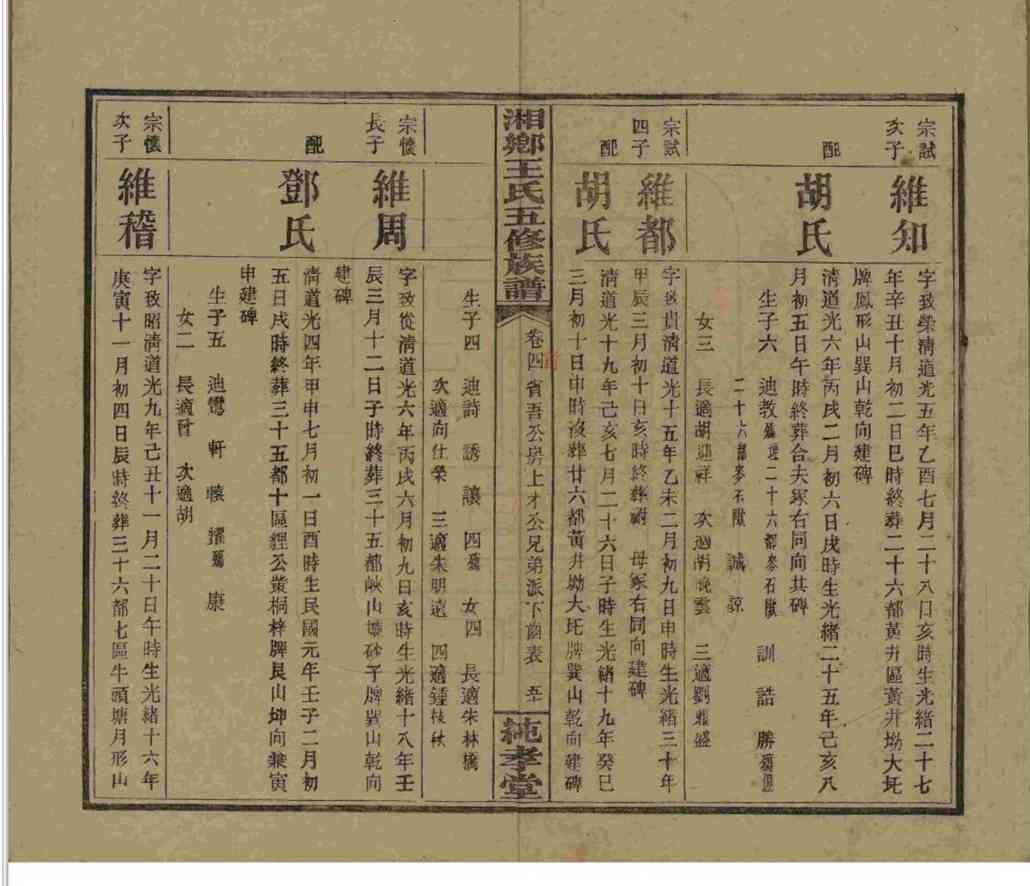 宗試
次子
維知
字致榮清道光五年乙酉七月二十八日亥時生光緒二十七
年辛丑十月初二日巳時終葬二十六都黃井區黃井坳大圫
牌鳳形山巽山乾向建碑
配
胡氏
清道光六年丙戌二月初六日戌時生光緒二十五年己亥八
月初五日午時終葬合夫冢右同向共碑
生子六 迪教 二十六都麥石隴 訓 誥 勝
二十六都麥石隴 誠 諒
女三 長適胡 祥 次適胡晚雲 三適劉 盛
宗試
四子
維都
字致貴清道光十五年乙未二月初九日申時生光緒三十年
甲辰三月初十日亥時終葬祔 母冢右同向建碑
配
胡氏
清道光十九年己亥七月二十六日子時生光緒十九年癸巳
三月初十日申時沒葬廿六都黃井坳大圫牌巽山乾向建碑
湘鄉王氏五修族譜
卷四 省吾公房上才公兄弟派下齒表
純孝堂
生子四 迪詩 誘 讓 四 女四 長適朱林橋
次適向仕榮 三適朱明遠 四適鍾枝秋
宗懷
長子
維周
字致從清道光六年丙戌六月初九日亥時生光緒十八年壬
辰三月十二日子時終葬三十五都峽山 砂子牌巽山乾向
建碑
配
鄧氏
清道光四年甲申七月初一日酉時生民國元年壬子二月初
五日戌時終葬三十五都十區貍公 桐梓牌艮山坤向兼寅
申建碑
生子五 迪鸞 軒 耀 康
女二 長適 次適胡
宗懷
次子
維稽
字致昭清道光九年己丑十一月二十日午時生光緒十六年
庚寅十一月初四日辰時終葬三十六都七區牛頭塘月形山